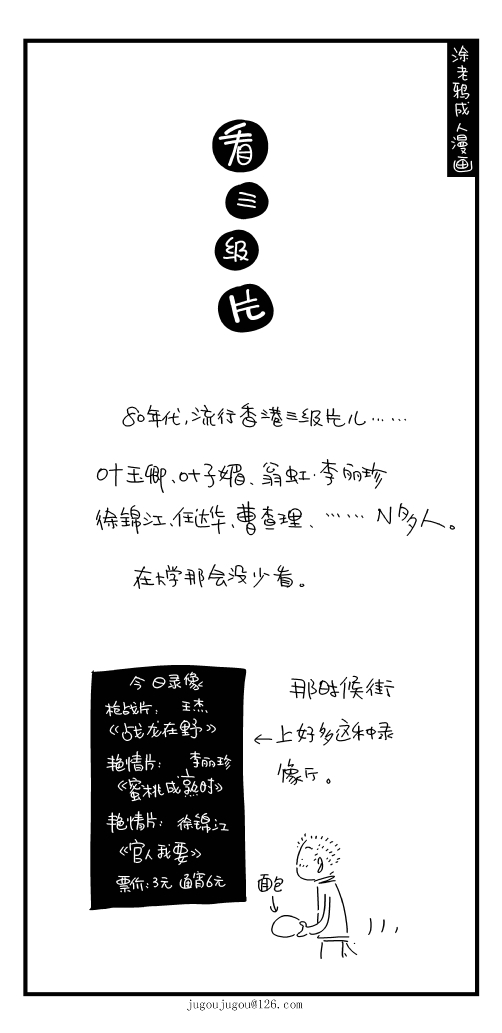 涂老鸦成人漫画
看三级片
80年代，流行香港三级片儿……
叶玉卿、叶子媚、翁虹·李丽珍
徐锦江、任达华、曹查理、……N多人。
在大学那会没少看。
今日录像
枪战片：王杰
《战龙在野》
艳情片：李丽珍
《蜜桃成熟时》
艳情片：徐锦江
《官人我要》
票价：3元 通宵6元
那时候街
←上好多这种录
像厅。
面包
jugoujugou@126.com